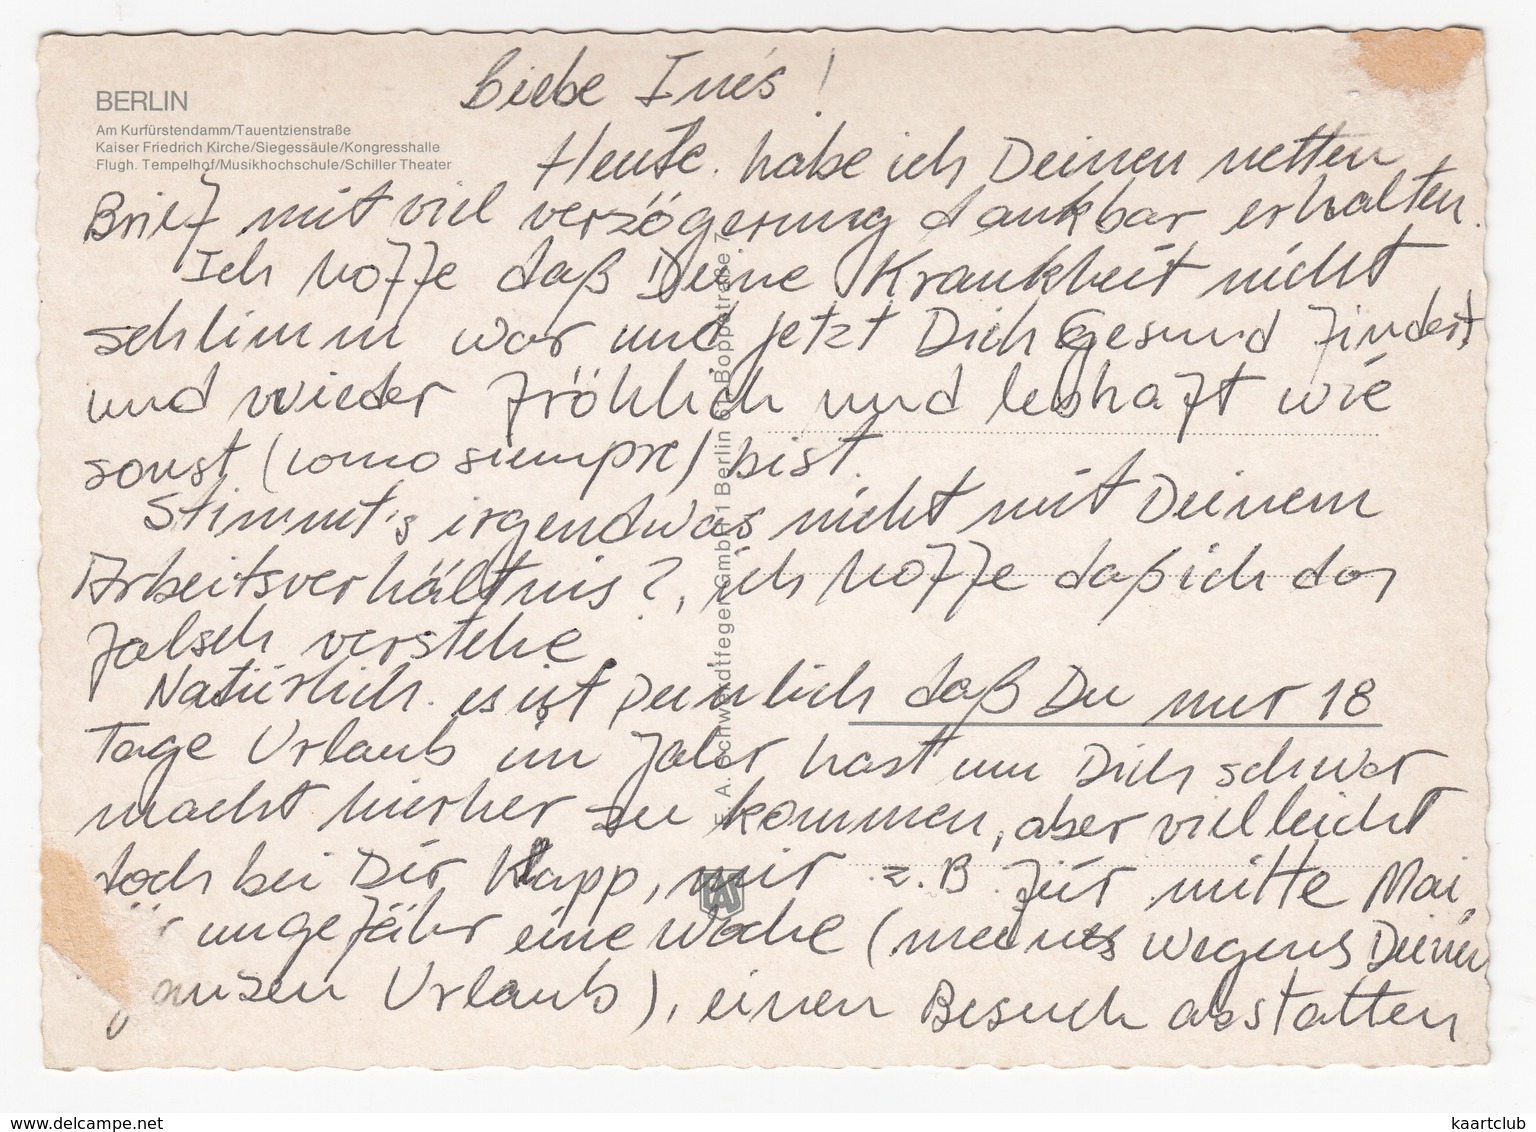 Liebe Inés!
BERLIN
Am Kurfürstendamm/Tauentzienstraße
Kaiser Friedrich Kirche/Siegessäule/Kongresshalle
Flugh. Tempelhof/Musikhochschule/Schiller Theater
Heute habe ich Deinen netten
Brief mit viel verzögerung dankbar erhalten.
Ich hoffe daß Deine Krankheit nicht
schlimm war und jetzt Dich Gesund findest,
und wieder fröhlich und lebhaft wie
sonst (como siempre) bist.
Stimmt's irgendwas nicht mit Deinem
Arbeitsverhältnis?, ich hoffe daß ich das
falsch verstehe.
Natürlich es ist peinlich daß Du nur 18
Tage Urlaub im Jahr hast um Dich schwer
macht hierher zu kommen, aber vielleicht
doch bei Dir klapp, mir z.B. für mitte Mai,
für ungefähr eine Woche (meines wegens Deinen
ganzen Urlaub), einen Besuch abstatten
E. A. Schwerdtfeger GmbH 1 Berlin 61 Boppstraße 7
EAS
www.delcampe.net
kaartclub